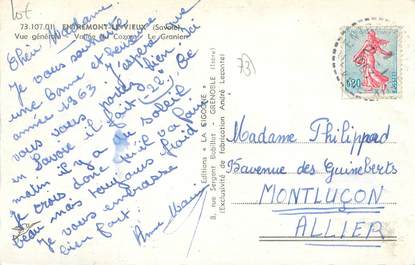 Lot
73.107.01I ENTREMONT-LE-VIEUX (Savoie)
Vue générale Vallée du Cozon Le Granier
Chère Madame
Je vous souhaite
une bonne et heureuse
année 1963 j'espère que
vous vous portez bien ici
en Savoie il fait 22° Ce
matin il y a du soleil
Je crois donc qu'il va faire
beau mais toujours froid
Je vous embrasse
bien fort.
Anne Marie
Editions " LA CIGOGNE "
8, rue Sergent Bobillot - GRENOBLE (Isère)
(Exclusivité de fabrication André Leconte)
73
0,20
Madame Philippard
13 avenue des Guineberts
MONTLUÇON
ALLIER